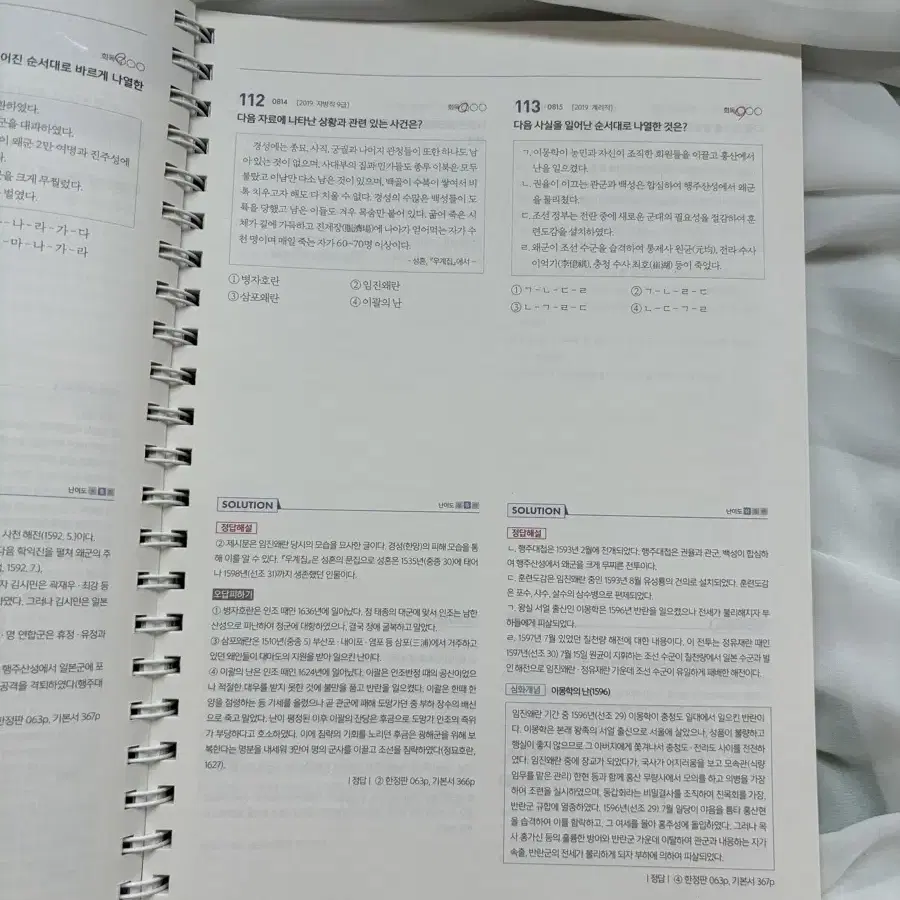 회독
어진 순서대로 바르게 나열한
하였다.
군을 대파하였다.
이 왜군 2만 여명과 진주성에
다.
군을 크게 무찔렀다.
벌였다.
- 나 - 라 - 가 - 다
- 마 - 나 - 가 - 라
난이도
사천 해전(1592. 5.)이다.
다음 학익진을 펼쳐 왜군의 주
1592. 7.).
자 김시민은 곽재우·최경 등
하였다. 그러나 김시민은 일본
·명 연합군은 휴정·유정과
행주산성에서 일본군에 포
공격을 격퇴하였다(행주대
한정판 063p, 기본서 367p
112 0814 [2019 지방직 9급] 회독
다음 자료에 나타난 상황과 관련 있는 사건은?
경성에는 종묘, 사직, 궁궐과 나머지 관청들이 또한 하나도 남
아 있는 것이 없으며, 사대부의 집과 민가들도 종루 이북은 모두
불탔고 이남만 다소 남은 것이 있으며, 백골이 수북이 쌓여서 비
록 치우고자 해도 다 치울 수 없다. 경성의 수많은 백성들이 도
륙을 당했고 남은 이들도 겨우 목숨만 붙어 있다. 굶어 죽은 시
체가 길에 가득하고 진제장(賑濟場)에 나아가 얻어먹는 자가 수
천 명이며 매일 죽는 자가 60~70명 이상이다.
- 성혼, 『우계집』에서 -
① 병자호란 ② 임진왜란
③ 삼포왜란 ④ 이괄의 난
SOLUTION 난이도
정답해설
② 제시문은 임진왜란 당시의 모습을 묘사한 글이다. 경성(한양)의 피해 모습을 통
해 이를 알 수 있다. 『우계집』은 성혼의 문집으로 성혼은 1535년(중종 30)에 태어
나 1598년(선조 31)까지 생존했던 인물이다.
오답피하기
① 병자호란은 인조 때인 1636년에 일어났다. 청 태종의 대군에 맞서 인조는 남한
산성으로 피난하여 청군에 대항하였으나, 결국 청에 굴복하고 말았다.
③ 삼포왜란은 1510년(중종 5) 부산포·내이포·염포 등 삼포(三浦)에서 거주하고
있던 왜인들이 대마도의 지원을 받아 일으킨 난이다.
④ 이괄의 난은 인조 때인 1624년에 일어났다. 이괄은 인조반정 때의 공신이었으
나 적절한 대우를 받지 못한 것에 불만을 품고 반란을 일으켰다. 이괄은 한때 한
양을 점령하는 등 기세를 올렸으나 곧 관군에 패해 도망가던 중 부하 장수의 배신
으로 죽고 말았다. 난이 평정된 이후 이괄의 잔당은 후금으로 도망가 인조의 즉위
가 부당하다고 호소하였다. 이에 침략의 기회를 노리던 후금은 광해군을 위해 보
복한다는 명분을 내세워 3만여 명의 군사를 이끌고 조선을 침략하였다(정묘호란,
1627).
| 정답 | ② 한정판 063p, 기본서 366p
113 0815 [2019 계리직] 회독
다음 사실을 일어난 순서대로 나열한 것은?
ㄱ. 이몽학이 농민과 자신이 조직한 회원들을 이끌고 홍산에서
난을 일으켰다.
ㄴ. 권율이 이끄는 관군과 백성은 합심하여 행주산성에서 왜군
을 물리쳤다.
ㄷ. 조선 정부는 전란 중에 새로운 군대의 필요성을 절감하여 훈
련도감을 설치하였다.
ㄹ. 왜군이 조선 수군을 습격하여 통제사 원균(元均), 전라 수사
이억기(李億祺), 충청 수사 최호(崔湖) 등이 죽었다.
① ㄱ - ㄴ - ㄷ - ㄹ ② ㄱ - ㄴ - ㄹ - ㄷ
③ ㄴ - ㄱ - ㄹ - ㄷ ④ ㄴ - ㄷ - ㄱ - ㄹ
SOLUTION 난이도
정답해설
ㄴ. 행주대첩은 1593년 2월에 전개되었다. 행주대첩은 권율과 관군, 백성이 합심하
여 행주산성에서 왜군을 크게 무찌른 전투이다.
ㄷ. 훈련도감은 임진왜란 중인 1593년 8월 유성룡의 건의로 설치되었다. 훈련도감
은 포수, 사수, 살수의 삼수병으로 편제되었다.
ㄱ. 왕실 서얼 출신인 이몽학은 1596년 반란을 일으켰으나 전세가 불리해지자 부
하들에게 피살되었다.
ㄹ. 1597년 7월 있었던 칠천량 해전에 대한 내용이다. 이 전투는 정유재란 때인
1597년(선조 30) 7월 15일 원균이 지휘하는 조선 수군이 칠천량에서 일본 수군과 벌
인 해전으로 임진왜란·정유재란 가운데 조선 수군이 유일하게 패배한 해전이다.
심화개념 이몽학의 난(1596)
임진왜란 기간 중 1596년(선조 29) 이몽학이 충청도 일대에서 일으킨 반란이
다. 이몽학은 본래 왕족의 서얼 출신으로 서울에 살았으나, 성품이 불량하고
행실이 좋지 않으므로 그 아버지에게 쫓겨나서 충청도·전라도 사이를 전전하
였다. 임진왜란 중에 장교가 되었다가, 국사가 어지러움을 보고 모속관(식량
임무를 맡은 관리) 한현 등과 함께 홍산 무량사에서 모의를 하고 의병을 가장
하여 조련을 실시하였으며, 동갑회라는 비밀결사를 조직하여 친목회를 가장,
반란군 규합에 열중하였다. 1596년(선조 29) 7월 일당이 야음을 틈타 홍산현
을 습격하여 이를 함락하고, 그 여세를 몰아 홍주성에 돌입하였다. 그러나 목
사 홍가신 등의 훌륭한 방어와 반란군 가운데 이탈하여 관군과 내응하는 자가
속출, 반란군의 전세가 불리하게 되자 부하에 의하여 피살되었다.
| 정답 | ④ 한정판 063p, 기본서 367p